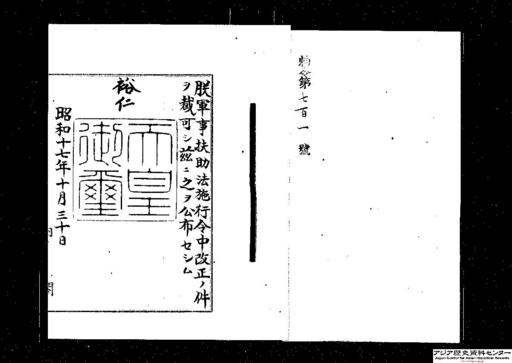 勅令第七百一號
朕軍事扶助法施行令中改正ノ件
ヲ裁可シ茲ニ之ヲ公布セシム
裕仁
天皇
御璽
昭和十七年十月三十日
アジア歴史資料センター
Japan Center for Asian Historical Records